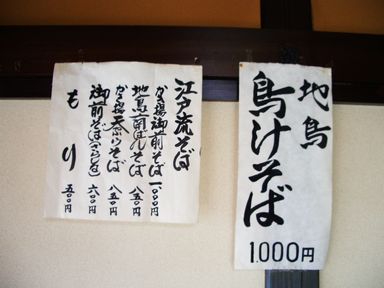 江戸流そば
かき揚御前そば 一、〇〇〇円
地鳥 そば 八五〇円
かき揚天ぷらそば 八五〇円
御前そば(さらしな) 六〇〇円
もり 五〇〇円
地鳥
鳥汁そば
1.000円